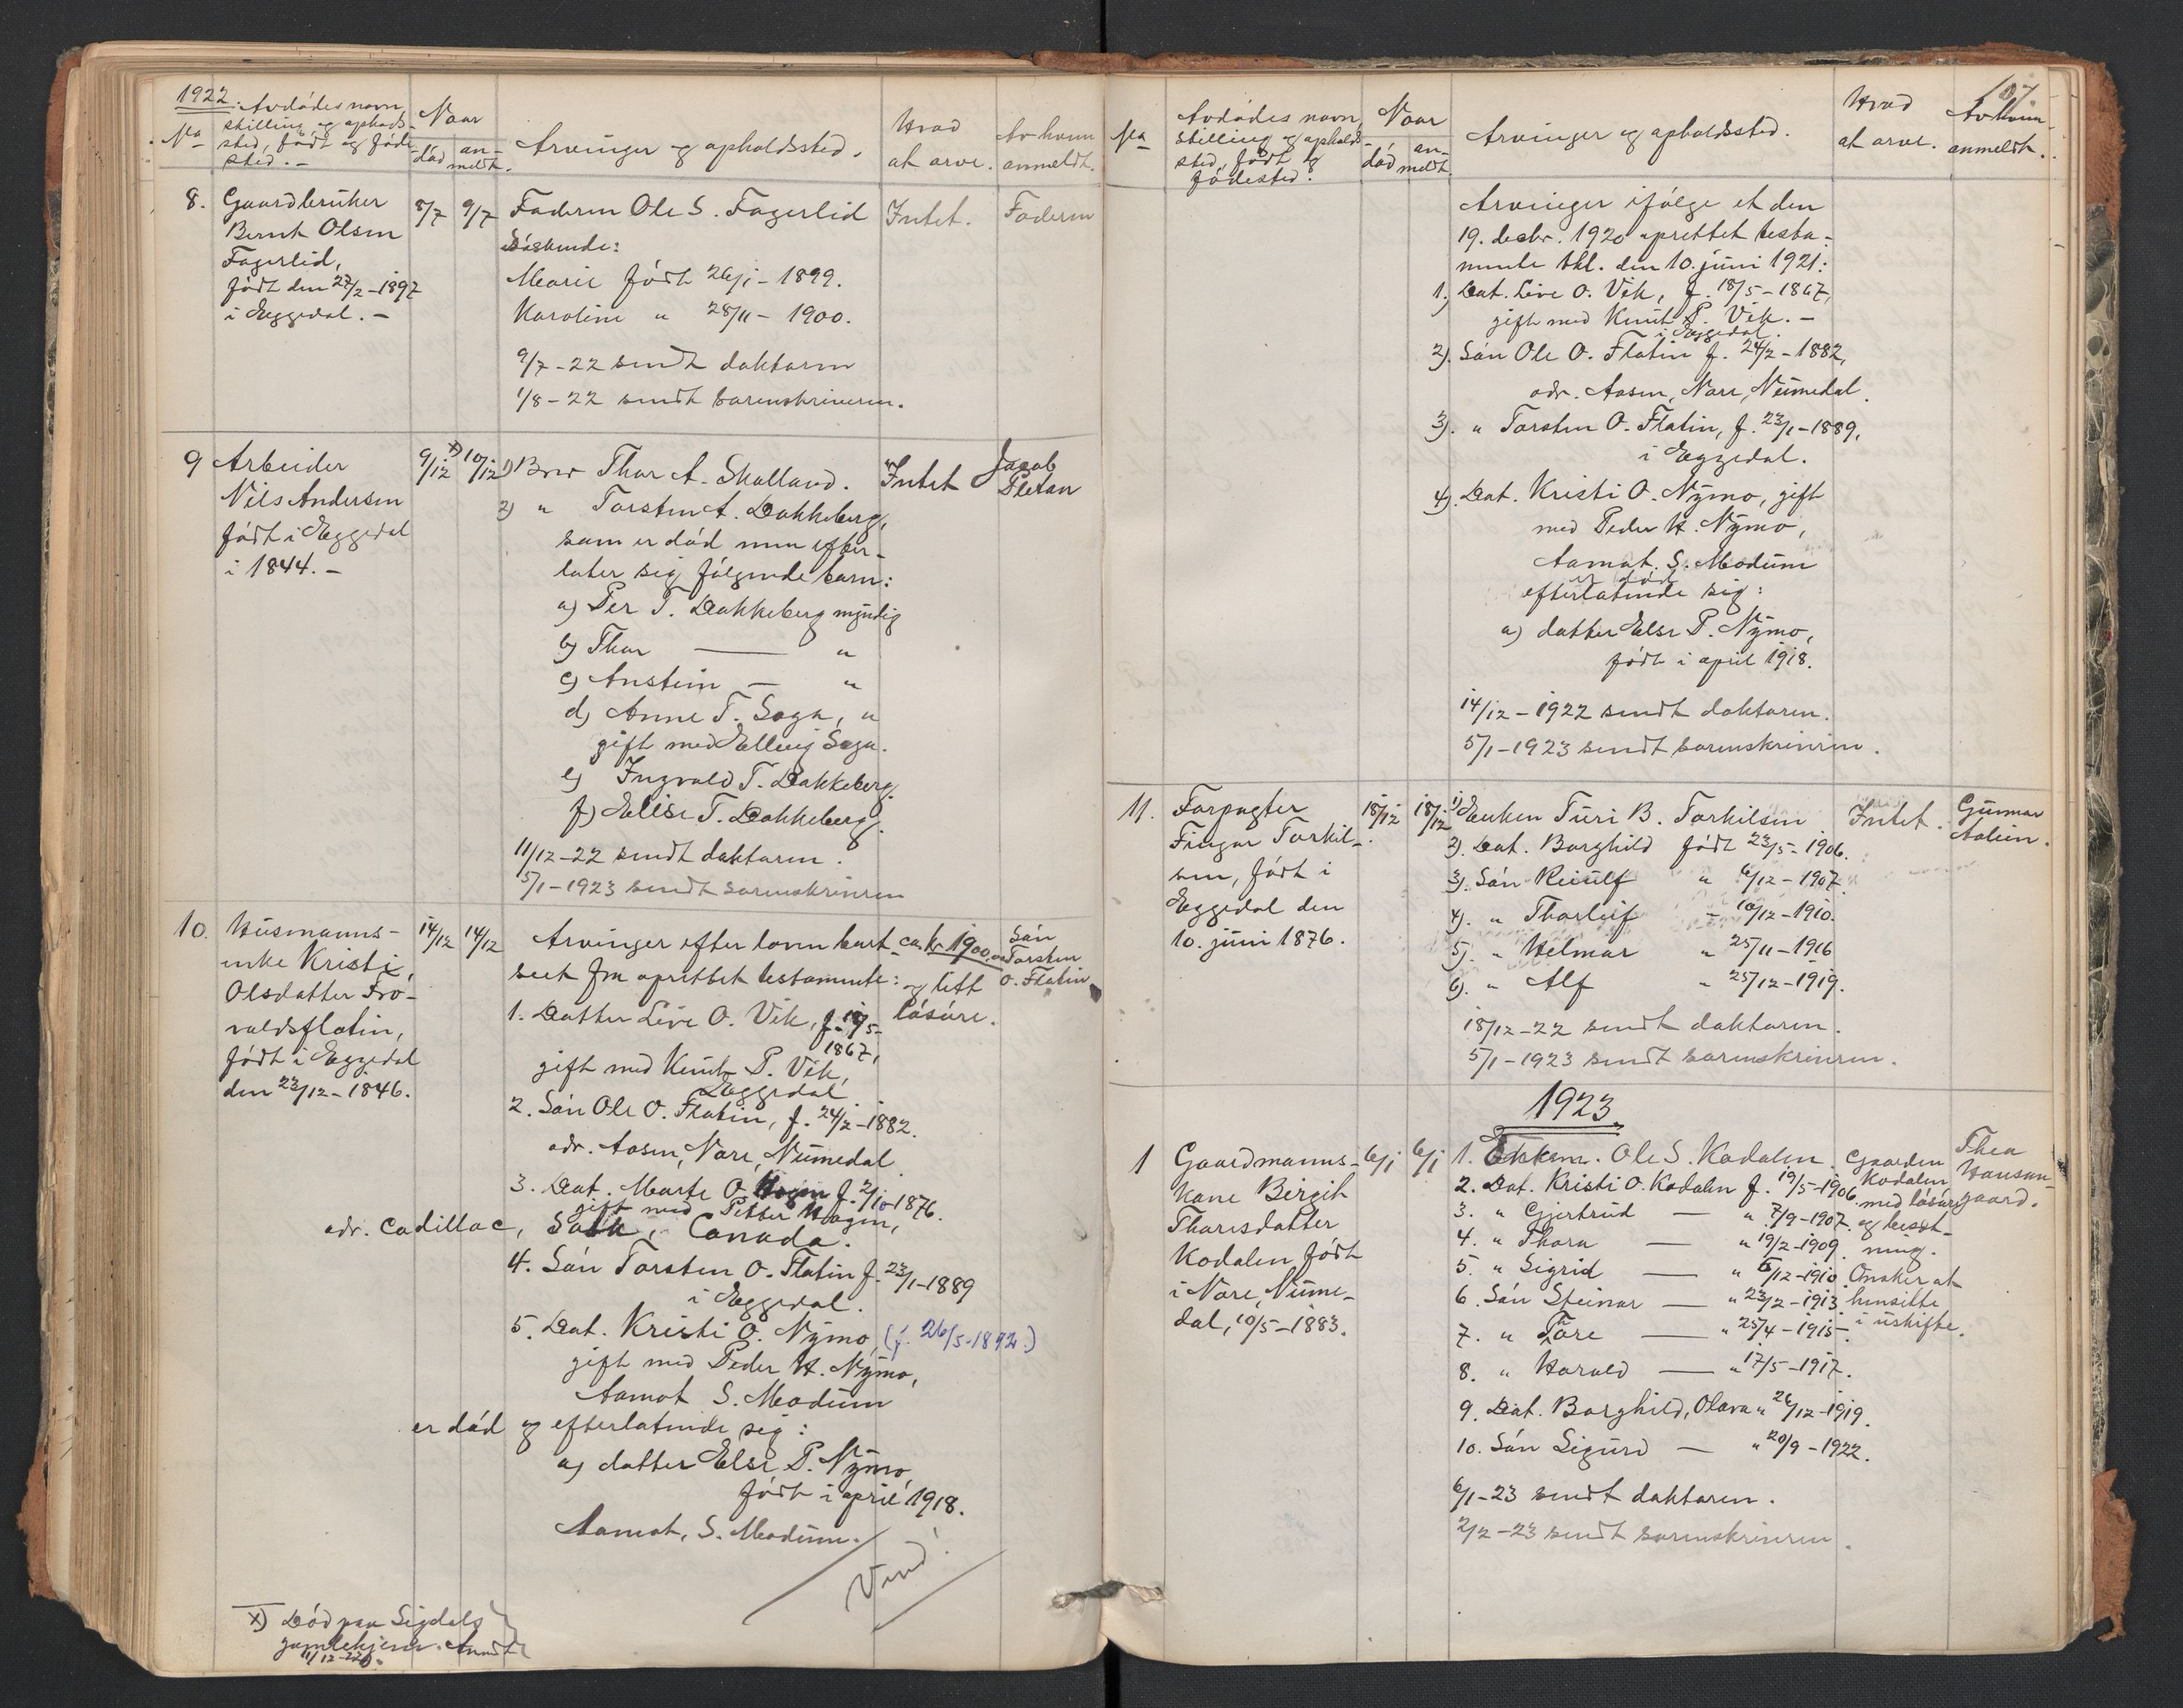 1922.
No
Avdødes navn,
stilling og ophods-
sted, født og føde-
sted. -
Naar
død
an-
meldt.
Arvinger og opholdssted.
Hvad
at arve.
Av hvem
anmeldt.
8. Gaardbruker
Bernt Olsen
Fagerlid,
født den 27/2-1897
i Eggedal. -
8/7 9/7
Faderen Ole S. Fagerlid
Søskende:
Marie født 26/1-1899.
Karoline " 28/11-1900.
9/7-22 sendt doktoren
1/8-22 sendt sorenskriveren.
Intet.
Faderen
9 Arbeider
Nils Andersen
født i Eggedal
i 1844. -
9/12 x) 10/12
1) Bror Thor A. Skalland.
2) " Torsten A. Bakkeberg,
som er død men efter-
later sig følgende barn:
a) Per T. Bakkeberg myndig
b) Thor — "
c) Anstein — "
d) Anne T. Saga, "
gift med Elling Saga.
e) Ingvald T. Bakkeberg.
f) Elise T. Bakkeberg.
11/12-22 sendt doktoren.
5/1-1923 sendt sorenskriveren
Intet
Jacob
Pletan
10. Husmanns-
enke Kristi
Olsdatter Frø-
valdsflatin,
født i Eggedal
den 23/12-1846.
14/12 14/12
Arvinger efter loven bort-
seet fra oprettet testamente:
1. Datter Live O. Vik, f. 18/5-
1867,
gift med Knut P. Vik,
Eggedal
2. Søn Ole O. Flatin, f. 24/2-1882.
adr. Aasen, Nore, Numedal.
3. Dat. Marte O. Hagen f. 2/10-1876.
gift med Petter Hagen,
adr. Cadillac, Sask, Canada.
4. Søn Torsten O. Flatin f. 23/1-1889
i Eggedal.
5. Dat. Kristi O. Nymo, (f. 26/5-1892.)
gift med Peder H. Nymo,
Aamot S. Modum
er død og efterlatende sig:
a) datter Else P. Nymo,
født i april 1918.
Aamot, S. Modum.
Vend!
ca. kr 1900.00
og litt
løsøre.
Søn
Torsten
O. Flatin
x) Død paa Sigdals
gamlehjem. Anmeldt
11/12-22.
107
No
Avdødes navn,
stilling og opholds-
sted, født og
fødested.
Naar
død
an-
meldt
Arvinger og opholdssted.
Hvad
at arve.
Av hvem
anmeldt.
Arvinger ifølge et den
19. decbr. 1920 oprettet testa-
mente tkl. den 10. juni 1921:
1. Dat. Live O. Vik, f. 18/5-1867,
gift med Knut P. Vik. -
i Eggedal.
2). Søn Ole O. Flatin f. 24/2-1882,
adr. Aasen, Nore, Numedal.
3). " Torsten O. Flatin, f. 23/1-1889,
i Eggedal.
4). Dat. Kristi O. Nymo, gift
med Peder H. Nymo,
Aamot. S. Modum
er død
efterlatende sig:
a) datter Else P. Nymo,
født i april 1918.
14/12-1922 sendt doktoren.
5/1-1923 sendt sorenskriveren.
11. Forpagter
Fingar Torkil-
sen, født i
Eggedal den
10. juni 1876.
18/12 18/12
1) Enken Turi B. Torkilsen
2). Dat. Borghild født 23/5-1906.
3). Søn Reiulf " 6/12-1907.
4). " Thorleif - 10/12-1910.
5). " Helmar " 25/11-1916
6). " Alf " 25/12-1919.
18/12-22 sendt doktoren.
5/1-1923 sendt sorenskriveren.
Intet.
Gunnar
Aalien.
1923
1 Gaardmanns-
kone Birgit
Thoresdatter
Kodalen født
i Nore, Nume-
dal, 10/5-1883.
6/1 6/1
1. Ektem. Ole S. Kodalen.
2. Dat. Kristi O. Kodalen f. 19/5-1906.
3. " Gjertrud — " 7/9-1907.
4. " Thora — " 19/2-1909.
5. " Sigrid — " 5/12-1910.
6. Søn Steinar — " 23/2-1913
7. " Tore — " 25/4-1915.
8. " Harald — " 17/5-1917.
9. Dat. Borghild, Olava " 26/12-1919.
10. Søn Sigurd — " 20/9-1922.
6/1-23 sendt doktoren.
2/2-23 sendt sorenskriveren.
Gaarden
Kodalen
med løsøre
og besæt-
ning.
Ønsker at
hensitte
i uskifte.
Thea
Hansen-
gaard.